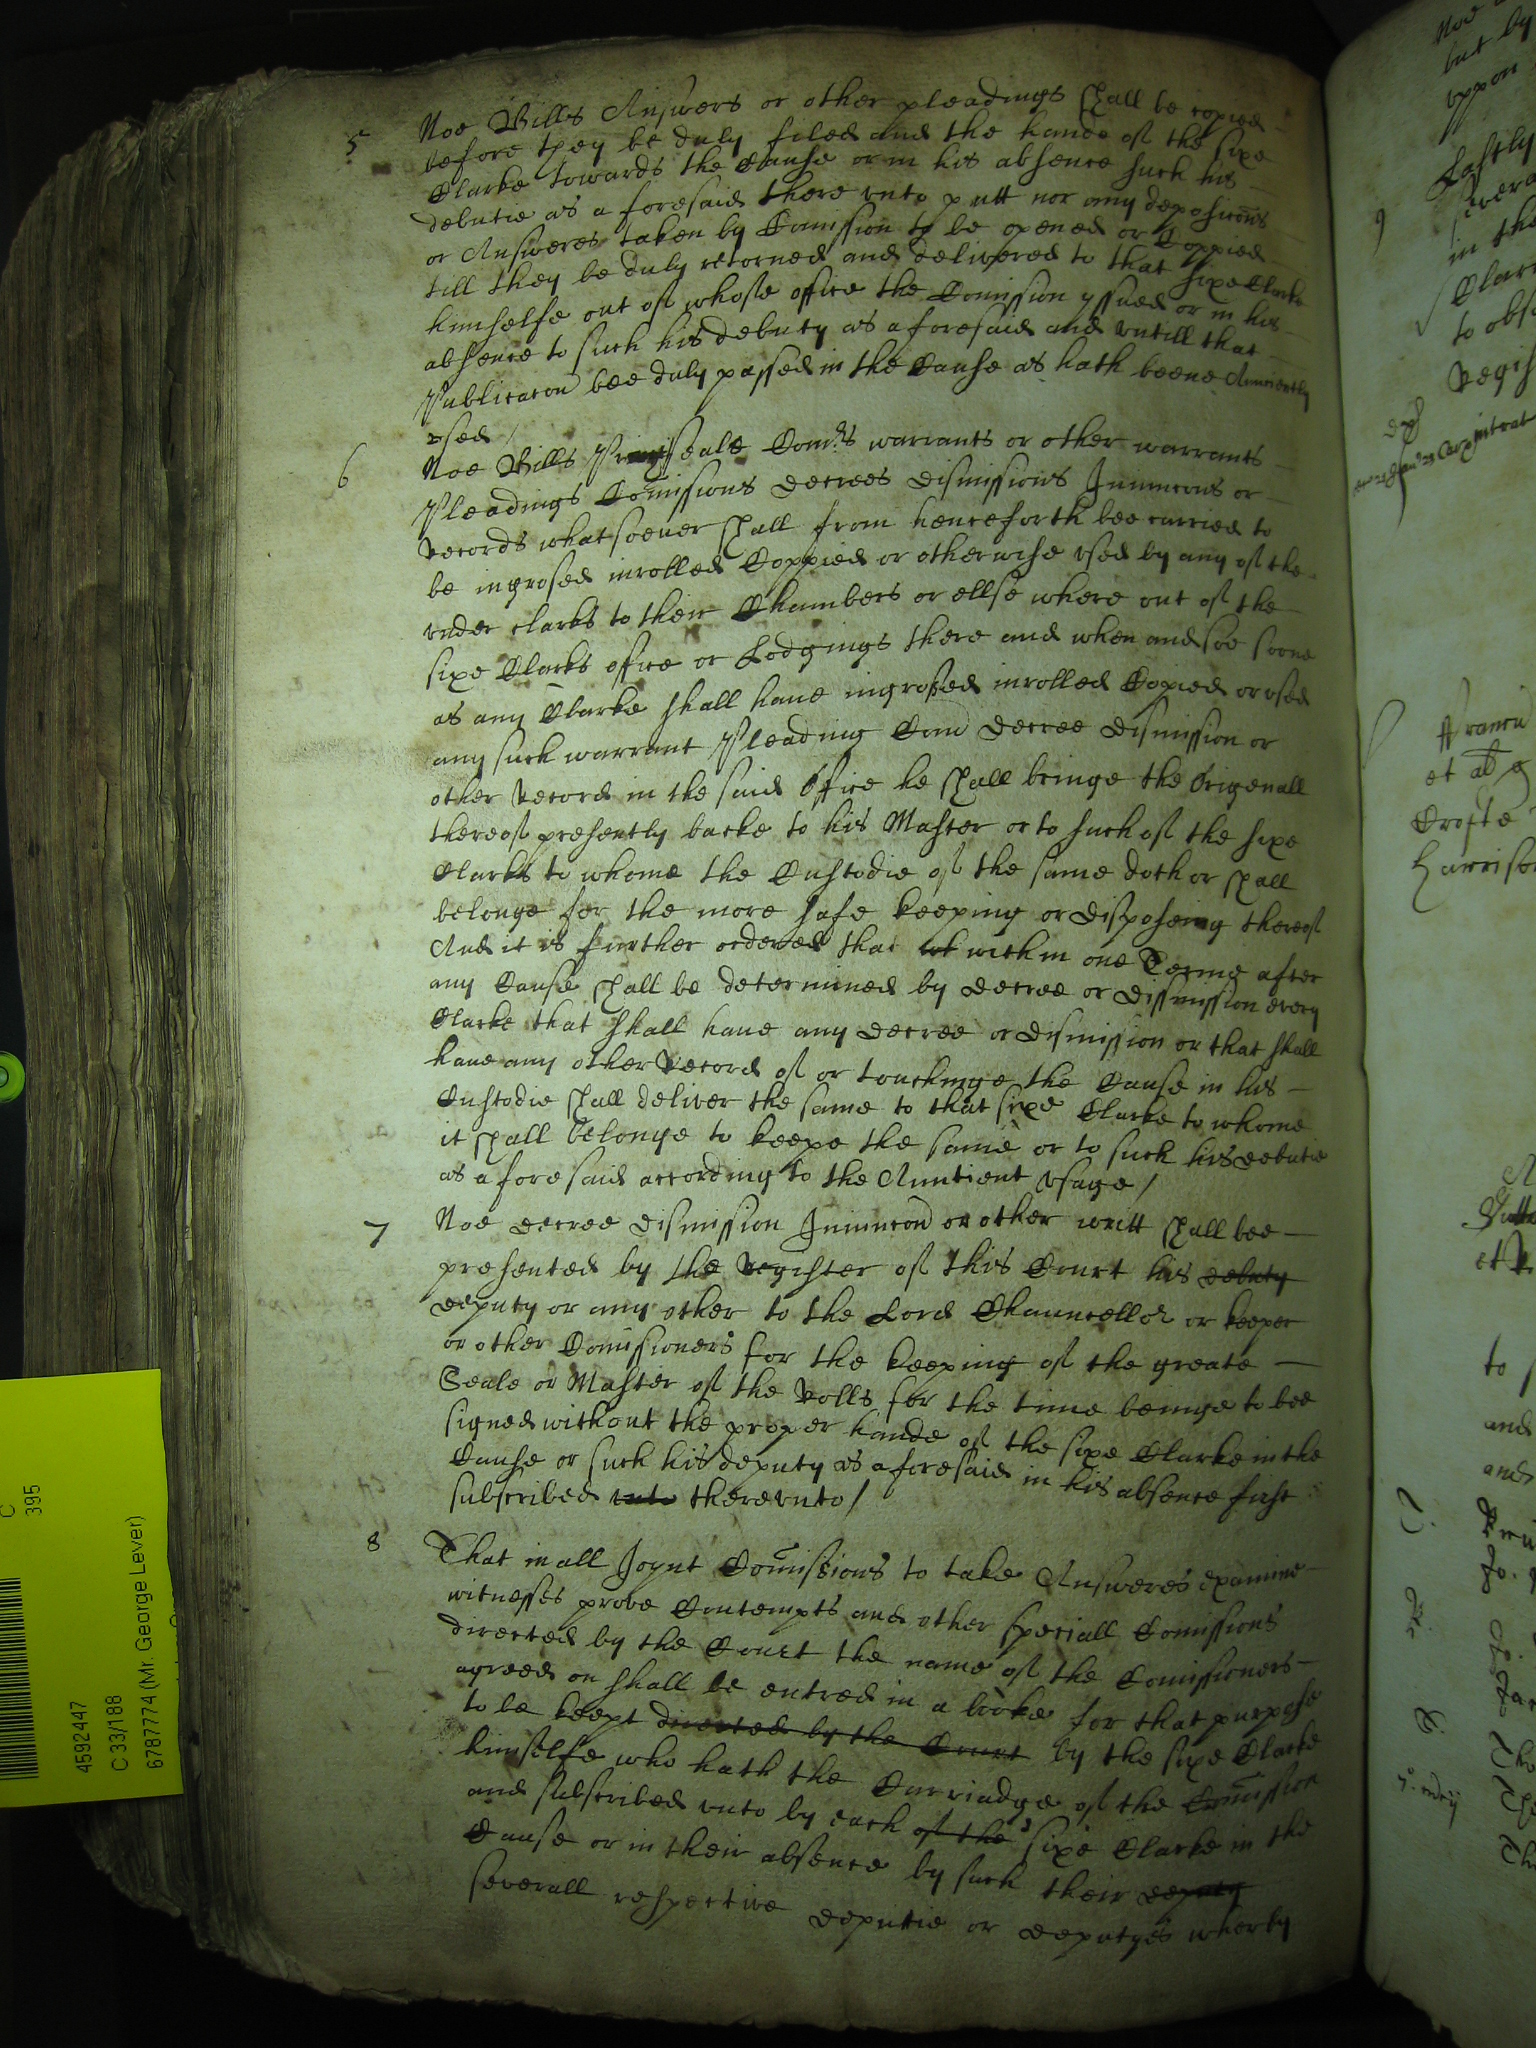 5 Noe Bills Answers or other pleadings shall be copied
before they be duly filed and the hande of the sixe
Clarke towards the Cause or in his absence such his
debutie as aforesaid there vnto putt nor any deposicons
or Answeres taken by Comission to be opened or Coppied
till they be duly retorned and delivered to that sixe Clarke
himselfe out of whose office the Comission yssued or in his
absence to such his debuty as aforesaid and vntill that
Publicacon bee duly passed in the Cause as hath beene Aunciently
vsed /
6 Noe Bills Privy Seale Comrs warrants or other warrants
Pleadings Comissions decrees dismissions Iniuncons or
Records whatsoever shall from henceforth bee carried to
be ingrosed inrolled Coppied or otherwise vsed by any of the
vnder clarks to their Chambers or ellse where out of the
sixe Clarks office or Lodgings there and when and soe soone
as any Clarke shall haue ingrossed inrolled Copied or vsed
any such warrant Pleading Com decree dismission or
other Record in the said office he shall bringe the Origenall
thereof presently backe to his Master or to such of the sixe
Clarks to whome the Custodie of the same doth or shall
belonge for the more safe keeping or disposeing thereof
And it is further ordered that within one Terme after
any Cause shall be determined by decree or dissmission every
Clarke that shall haue any decree or dismission or that shall
haue any other Record of or touchinge the Cause in his
Custodie shall deliver the same to that sixe Clarke to whome
it shall belonge to keepe the same or to such his debutie
as aforesaid according to the Auntient vsage /
7 Noe decree dismission Iniuncon or other writt shall bee
presented by the Register of this Court his debuty
deputy or any other to the Lord Chauncellor or keeper
or other Comissioners for the keeping of the greate
Seale or Master of the Rolls for the time beinge to bee
signed without the proper hande of the sixe Clarke in the
Cause or such his deputy as aforesaid in his absence first
subscribed vnto therevnto /
8 That in all Joynt Comissions to take Answeres examine
witnesses prove Contempts and other speciall Comissions
directed by the Court the name of the Comissioners
agreed on shall be entred in a booke for that purpose
to be keept directed by the Court by the sixe Clarke
himselfe who hath the Carriadge of the Comission
and subscribed vnto by each of the sixe Clarke in the
Cause or in their absence by such their deputy
severall respective deputie or deputyes wherby
9
Lastly
in the
to obs
C
395
4592447
C 33/188
6787774 (Mr. George Lever)